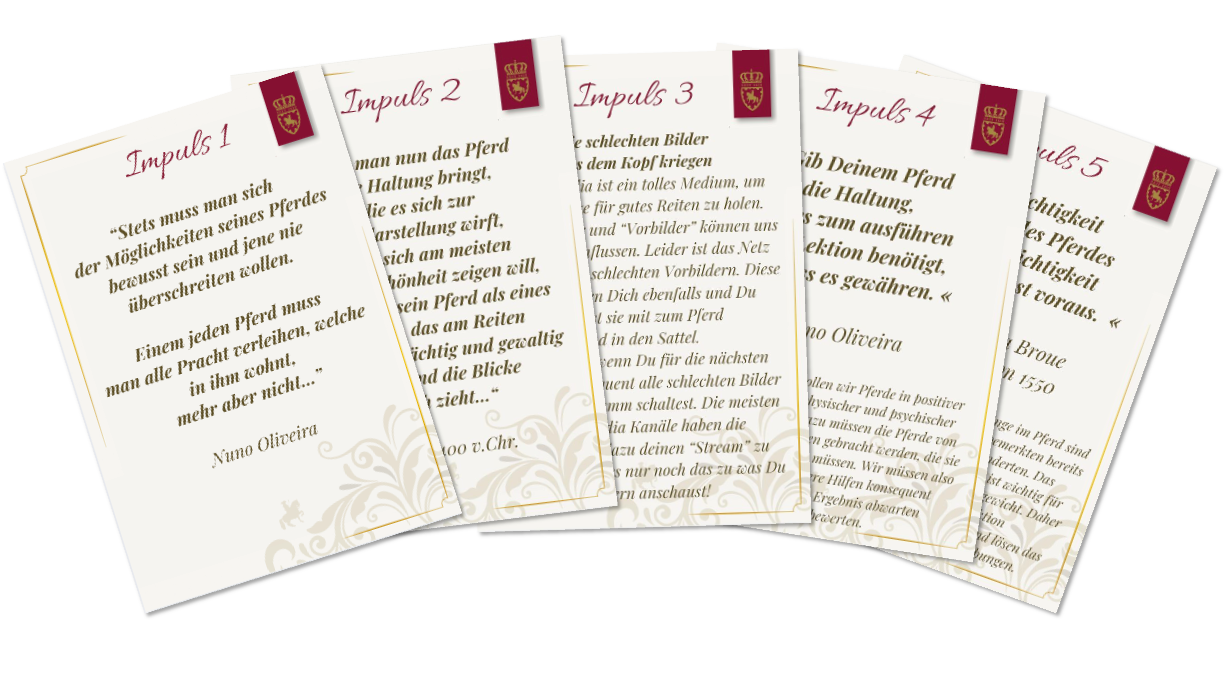 Impuls 1
“Stets muss man sich
der Möglichkeiten seines Pferdes
bewusst sein und jene nie
überschreiten wollen.
Einem jeden Pferd muss
man alle Pracht verleihen, welche
in ihm wohnt,
mehr aber nicht...”
Nuno Oliveira
Impuls 2
man nun das Pferd
Haltung bringt,
die es sich zur
arstellung wirft,
sich am meisten
hönheit zeigen will,
sein Pferd als eines
das am Reiten
ichtig und gewaltig
nd die Blicke
zieht...“
400 v.Chr.
Impuls 3
e schlechten Bilder
s dem Kopf kriegen
ia ist ein tolles Medium, um
e für gutes Reiten zu holen.
und “Vorbilder” können uns
flussen. Leider ist das Netz
schlechten Vorbildern. Diese
n Dich ebenfalls und Du
t sie mit zum Pferd
d in den Sattel.
wenn Du für die nächsten
quent alle schlechten Bilder
mm schaltest. Die meisten
dia Kanäle haben die
azu deinen “Stream” zu
s nur noch das zu was Du
rn anschaust!
Impuls 4
Gib Deinem Pferd
die Haltung,
s zum ausführen
ektion benötigt,
s es gewähren. «
no Oliveira
ollen wir Pferde in positiver
hysischer und psychischer
zu müssen die Pferde von
en gebracht werden, die sie
müssen. Wir müssen also
re Hilfen konsequent
Ergebnis abwarten
bewerten.
uls 5
chtigkeit
des Pferdes
ichtigkeit
st voraus. «
a Broue
n 1550
nge im Pferd sind
emerkten bereits
nderten. Das
ist wichtig für
gewicht. Daher
tion
nd lösen das
bungen.